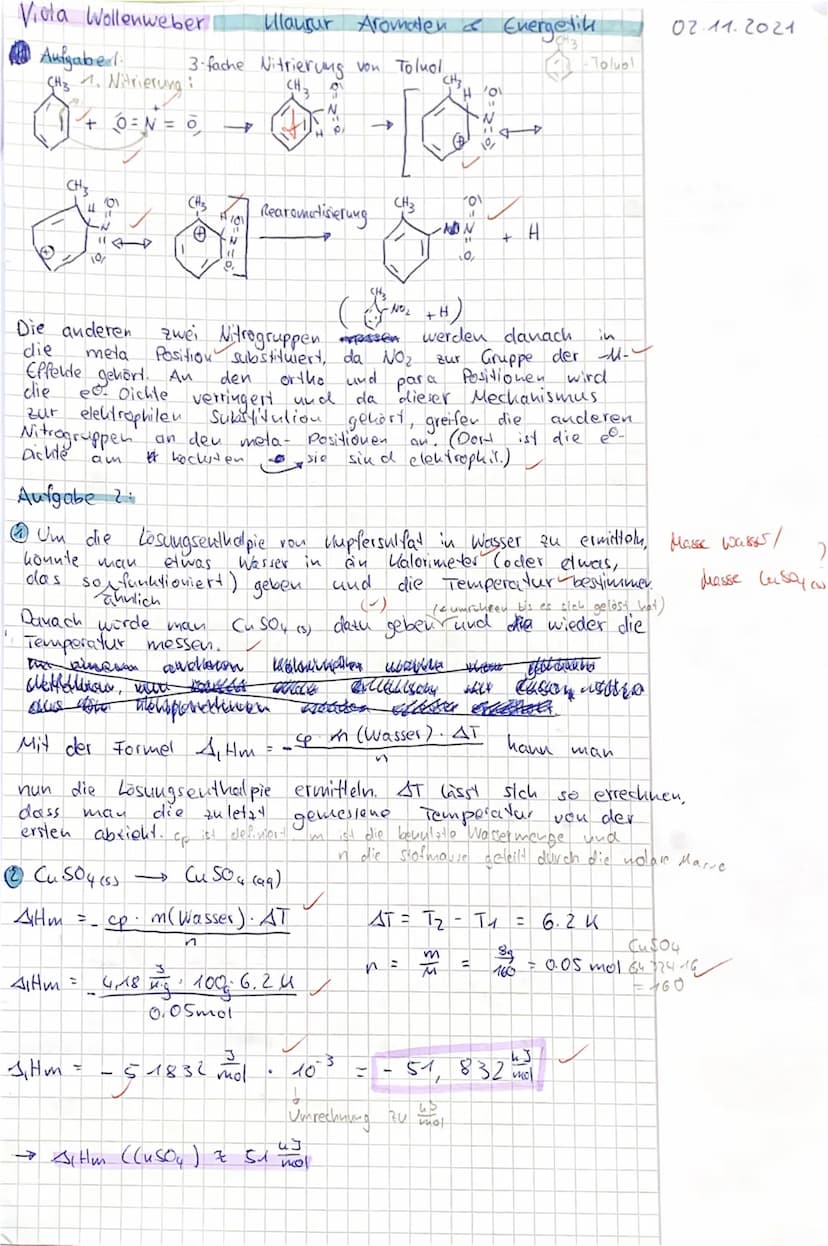 Viola Wollenweber Klausur Aromaten & Energetik 02.11.2021
Aufgabe 1. 3-fache Nitrierung von Toluol CH3 - Toluol
1. Nitrierung:
CH3 + O=N=O → CH3 N O H → CH3 H N O ⊕ ↔
CH3 H N O ⊕ ↔ CH3 H N O ⊕ Rearomatisierung → CH3 N O + H
(CH3 -NO2 + H)
Die anderen zwei Nitrogruppen werden danach in
die meta Position substituiert, da NO2 zur Gruppe der -M-
Effekte gehört. An den ortho und para Positionen wird
die e⊖- Dichte verringert und da dieser Mechanismus
zur elektrophilen Substitution gehört, greifen die anderen
Nitrogruppen an den meta- Positionen an. (Dort ist die e⊖-
Dichte am höchsten sie sind elektrophil.)
Aufgabe 2:
① Um die Lösungsenthalpie von Kupfersulfat in Wasser zu ermitteln, Masse Wasser/ ?
könnte man etwas Wasser in ein Kalorimeter (oder etwas,
das so funktioniert) geben und die Temperatur bestimmen. Masse CuSO4
ähnlich
(✓) (& umrühren bis es sich gelöst hat)
Danach würde man CuSO4 (s) dazu geben und wieder die
Temperatur messen.
Mit der Formel ΔlHm = - cp · m (Wasser) · ΔT / n kann man
nun die Lösungsenthalpie ermitteln. ΔT lässt sich so errechnen,
dass man die zuletzt gemessene Temperatur von der
ersten abzieht. cp ist definiert m ist die benutzte Wassermenge und
n die Stofmasse geteilt durch die molare Masse
② CuSO4 (s) → CuSO4 (aq)
ΔlHm = - cp · m (Wasser) · ΔT / n ΔT = T2 - T1 = 6.2 K
n = m/M = 8g/160 = 0.05 mol CuSO4
64+32+4·16
= 160
ΔlHm = - 4,18 J/K·g · 100g · 6.2 K / 0.05mol
ΔlHm = - 51832 J/mol · 10⁻³ = - 51, 832 kJ/mol
Umrechnung zu kJ/mol
→ ΔlHm (CuSO4) ≈ 51 kJ/mol